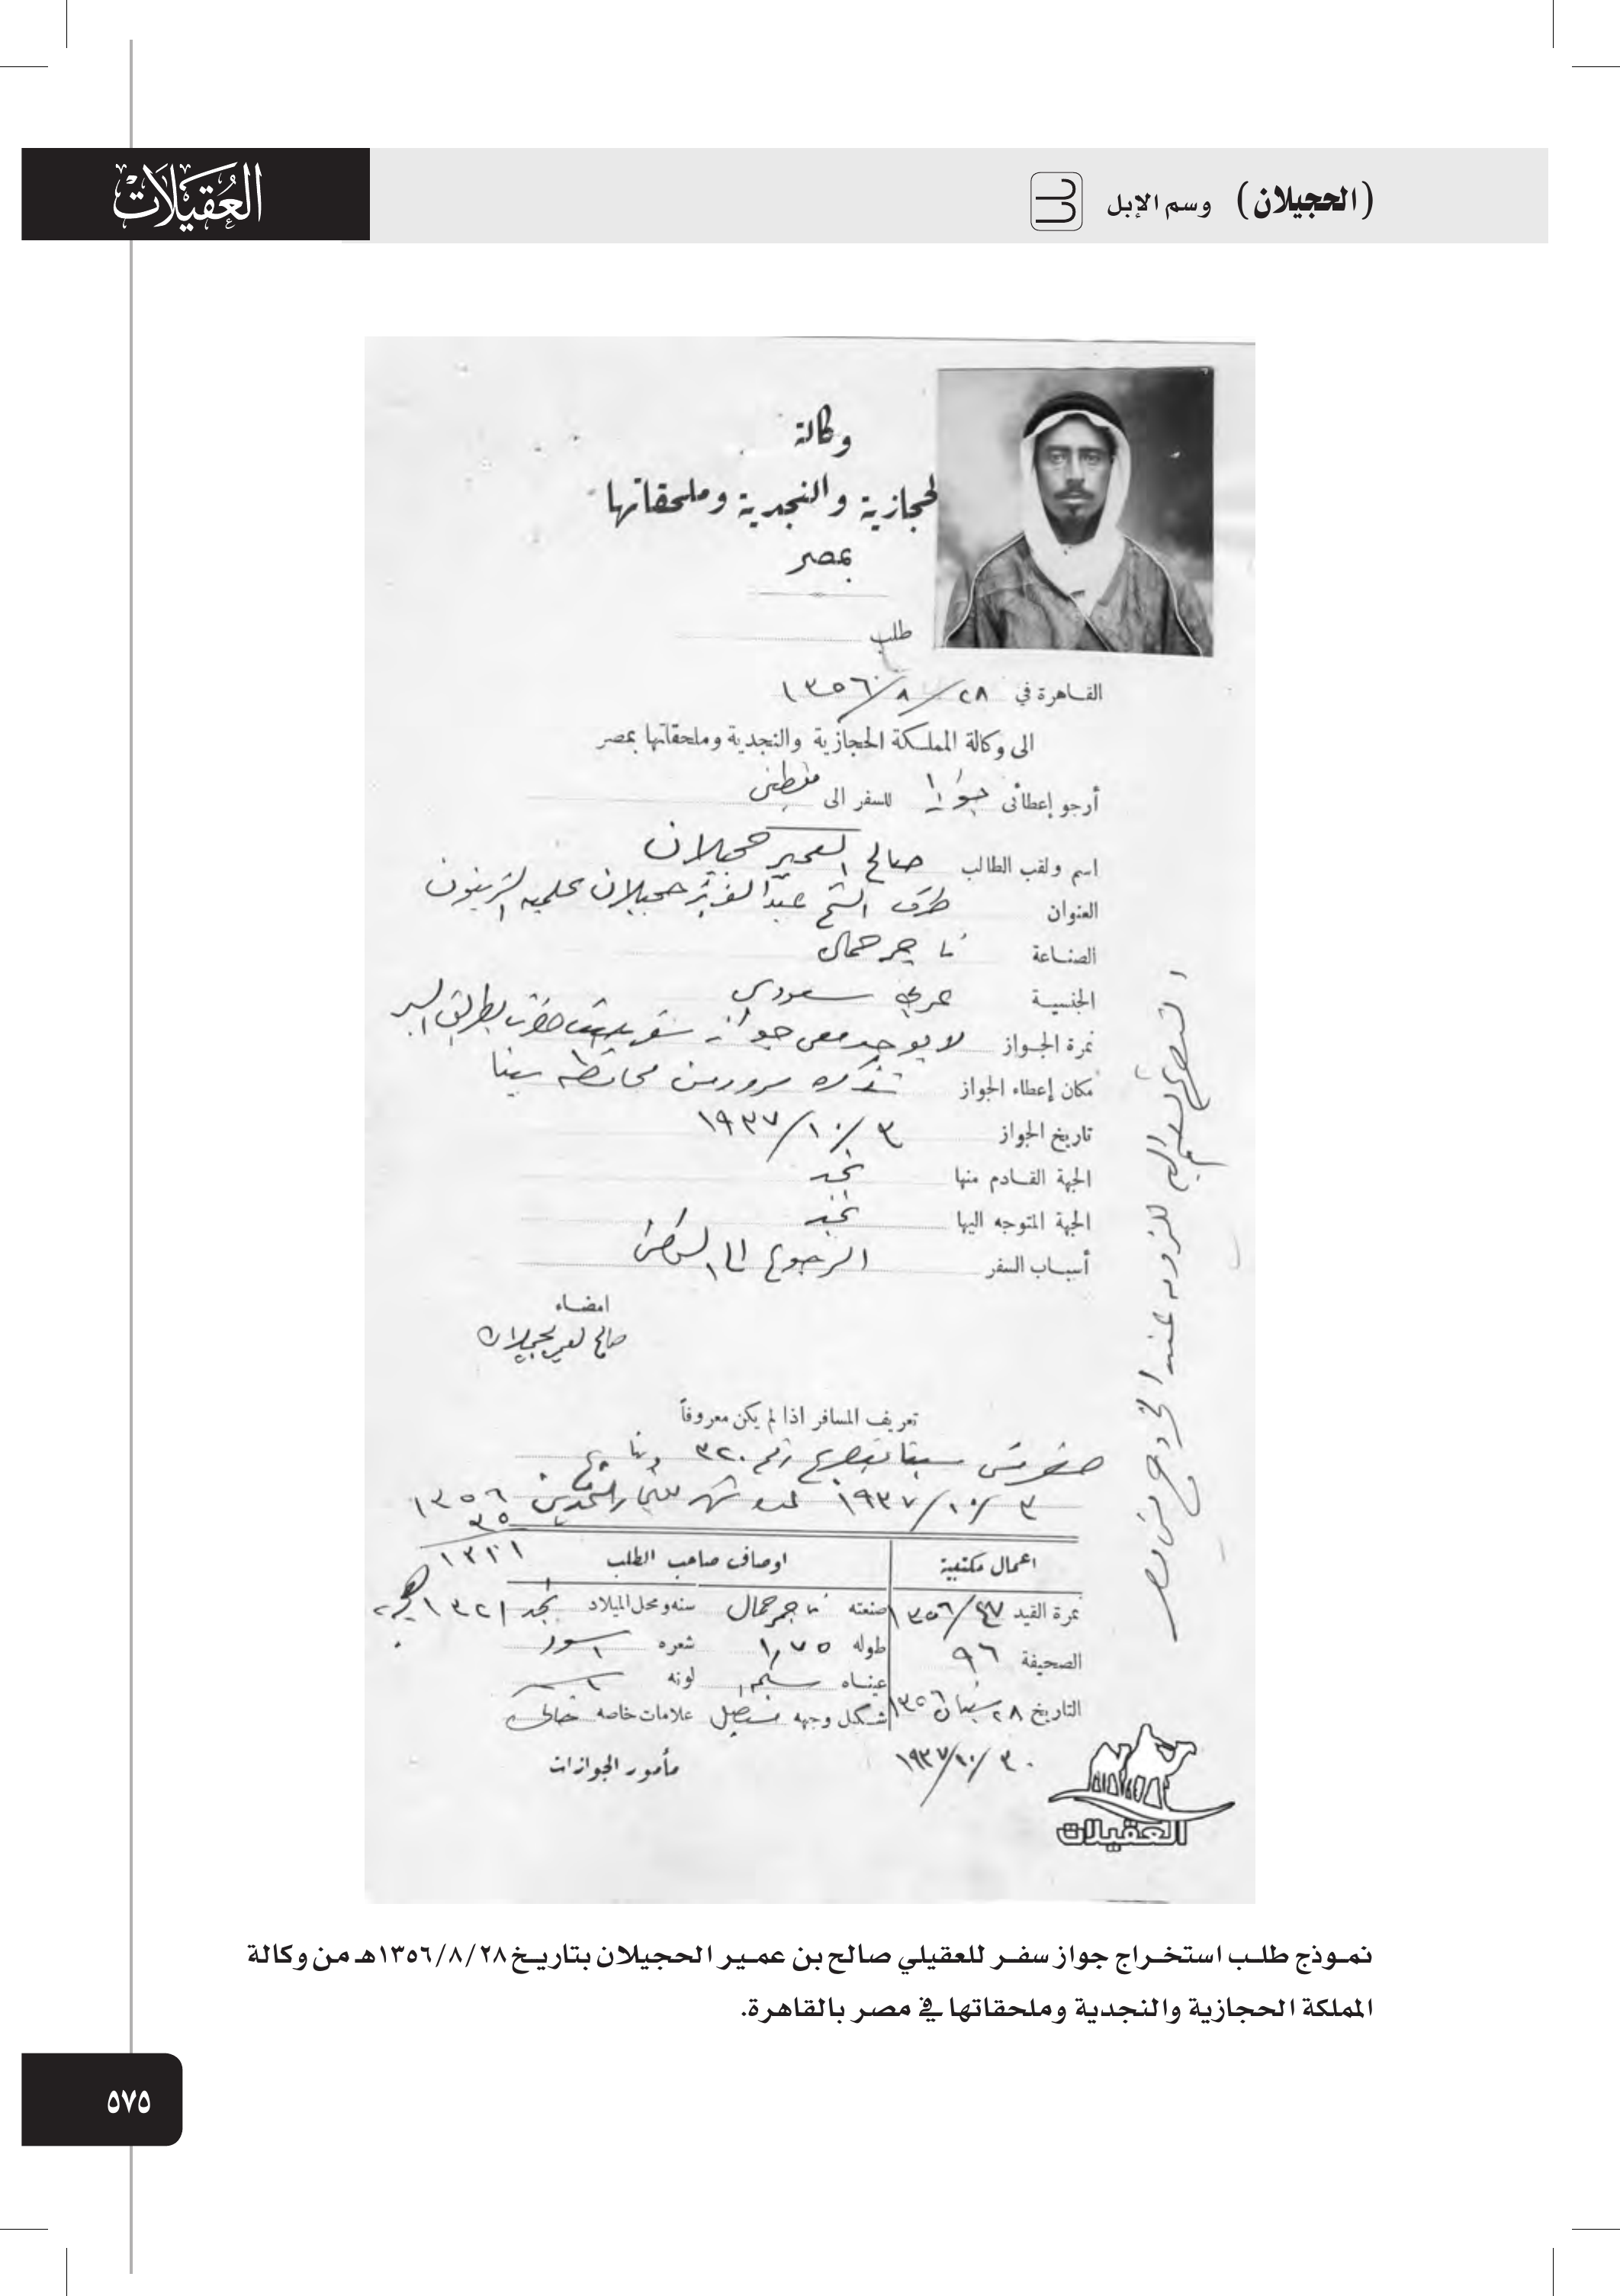 (الحجيلان) وسم الإبل
العُقَيْلَاتْ
وكالة
لحجازية والنجدية وملحقاتها
بمصر
طلب
القاهرة في ٢٨/٨/١٣٥٦
الى وكالة المملكة الحجازية والنجدية وملحقاتها بمصر
أرجو إعطائى جوازا للسفر الى فلسطين
اسم ولقب الطالب صالح العمير حجيلان
العنوان طرف الشيخ عبد العزيز حجيلان بحلمية الزيتون
الصناعة تاجر جمال
الجنسية عربي سعودي
نمرة الجواز لا يوجد معى جواز سفر حضرت بطريق البر
مكان إعطاء الجواز تذكرة مرور من محافظة سينا
تاريخ الجواز ٣/١٠/١٩٣٧
الجهة القادم منها نجد
الجهة المتوجه اليها نجد
أسباب السفر الرجوع الى الوطن
امضاء
صالح العمير الحجيلان
تعريف المسافر اذا لم يكن معروفاً
سينا رقم ٣٢٠
٣/١٠/١٩٣٧ شهر
١٣٥٦
٣٥
١٣٢١
اعمال مكتبية
اوصاف صاحب الطلب
نمرة القيد ٤٧/١٣٥٦ صنعته تاجر جمال سنه ومحل الميلاد نجد ١٣٢١
الصحيفة ٩٦ طوله ١,٧٥ شعره اسود
عيناه لونه
التاريخ ٢٨ شعبان ١٣٥٦ شكل وجهه مستطيل علامات خاصه
٣٠/١٠/١٩٣٧ مأمور الجوازات
العقيلات
نموذج طلب استخراج جواز سفر للعقيلي صالح بن عمير الحجيلان بتاريخ ١٣٥٦/٨/٢٨هـ من وكالة
المملكة الحجازية والنجدية وملحقاتها في مصر بالقاهرة.
٥٧٥